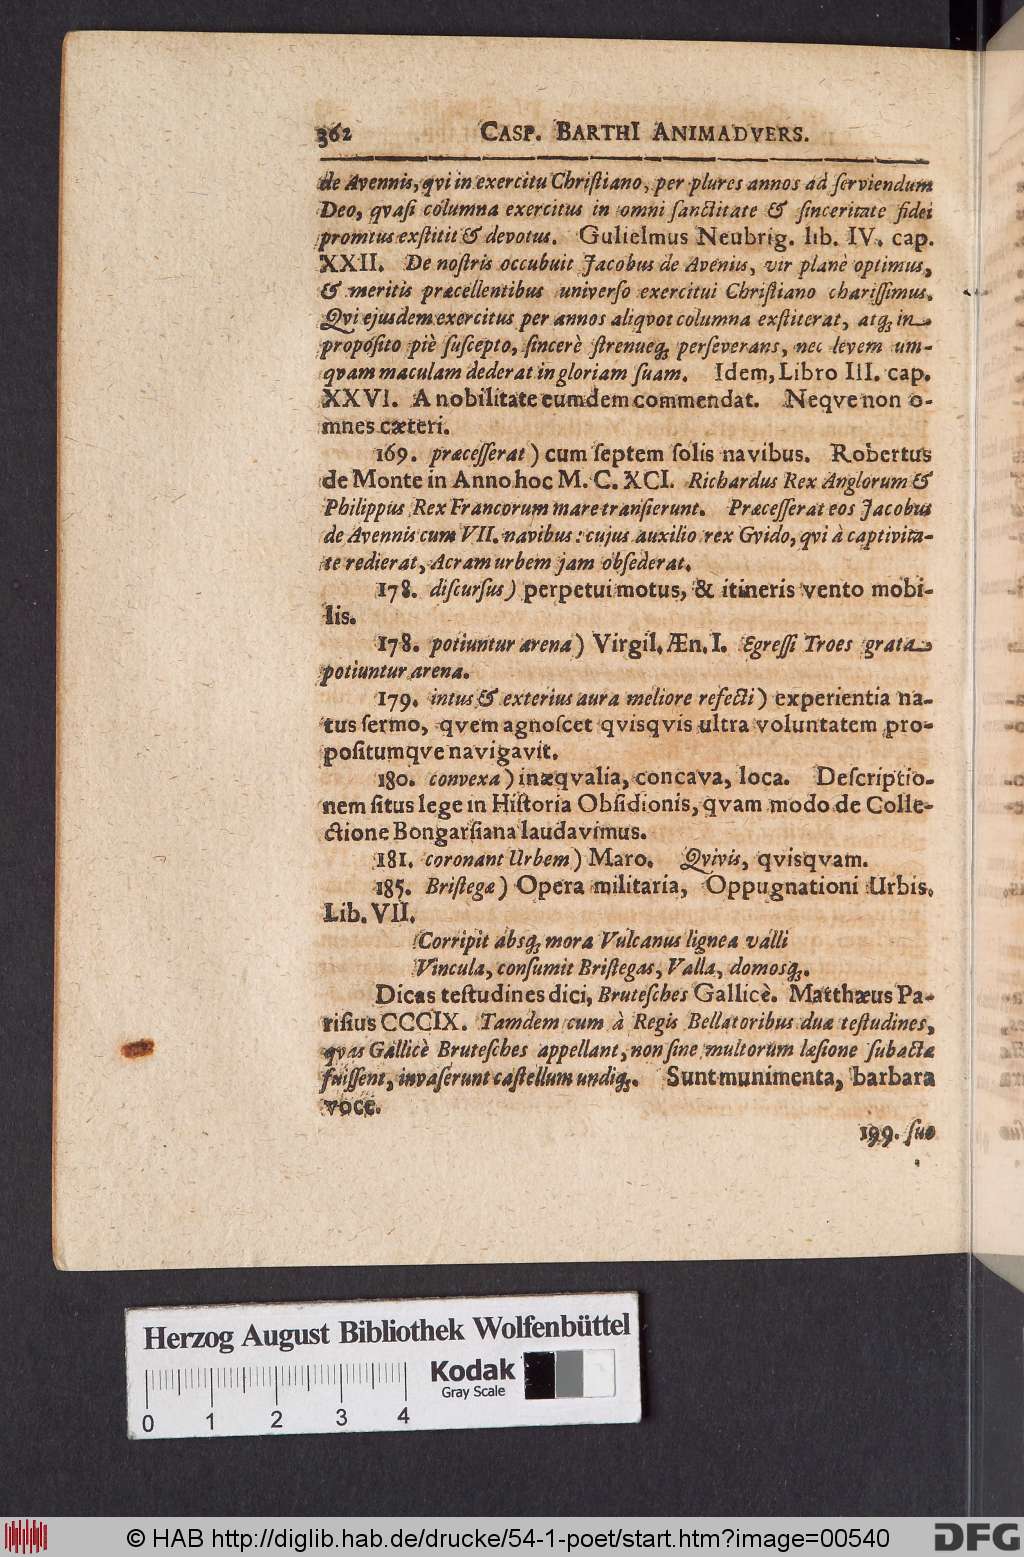 362 CASP. BARTHI ANIMADVERS.
de Avennis, qvi in exercitu Chriſtiano, per plures annos ad ſerviendum
Deo, qvaſi columna exercitus in omni ſanctitate & ſinceritate fidei
promtus exſtitit & devotus. Gulielmus Neubrig. lib. IV. cap.
XXII. De noſtris occubuit Jacobus de Avenius, vir planè optimus,
& meritis præcellentibus univerſo exercitui Chriſtiano chariſſimus.
Qvi ejusdem exercitus per annos aliqvot columna exſtiterat, atq; in
propoſito piè ſuſcepto, ſincerè ſtrenueq; perſeverans, nec levem um-
qvam maculam dederat in gloriam ſuam. Idem, Libro III. cap.
XXVI. A nobilitate eumdem commendat. Neqve non o-
mnes cæteri.
169. præceſſerat) cum ſeptem ſolis navibus. Robertus
de Monte in Anno hoc M. C. XCI. Richardus Rex Anglorum &
Philippus Rex Francorum mare tranſierunt. Præceſſerat eos Jacobus
de Avennis cum VII. navibus: cujus auxilio rex Gvido, qvi à captivita-
te redierat, Acram urbem jam obſederat.
178. diſcurſus) perpetui motus, & itineris vento mobi-
lis.
178. potiuntur arena) Virgil. Æn. I. Egreſſi Troes grata
potiuntur arena.
179. intus & exterius aura meliore refecti) experientia na-
tus ſermo, qvem agnoſcet qvisqvis ultra voluntatem pro-
poſitumqve navigavit.
180. convexa) inæqvalia, concava, loca. Deſcriptio-
nem ſitus lege in Hiſtoria Obſidionis, qvam modo de Colle-
ctione Bongarſiana laudavimus.
181. coronant Urbem) Maro. Qvivis, qvisqvam.
185. Briſtegæ) Opera militaria, Oppugnationi Urbis.
Lib. VII.
Corripit absq; mora Vulcanus lignea valli
Vincula, conſumit Briſtegas, Valla, domosq;.
Dicas teſtudines dici, Bruteſches Gallicè. Matthæus Pa-
riſius CCCIX. Tamdem cum à Regis Bellatoribus duæ teſtudines,
qvas Gallicè Bruteſches appellant, non ſine multorum læſione ſubactæ
fuiſſent, invaſerunt caſtellum undiq;. Sunt munimenta, barbara
voce.
199. ſuo
Herzog August Bibliothek Wolfenbüttel
Kodak
Gray Scale
0 1 2 3 4
© HAB http://diglib.hab.de/drucke/54-1-poet/start.htm?image=00540
DFG